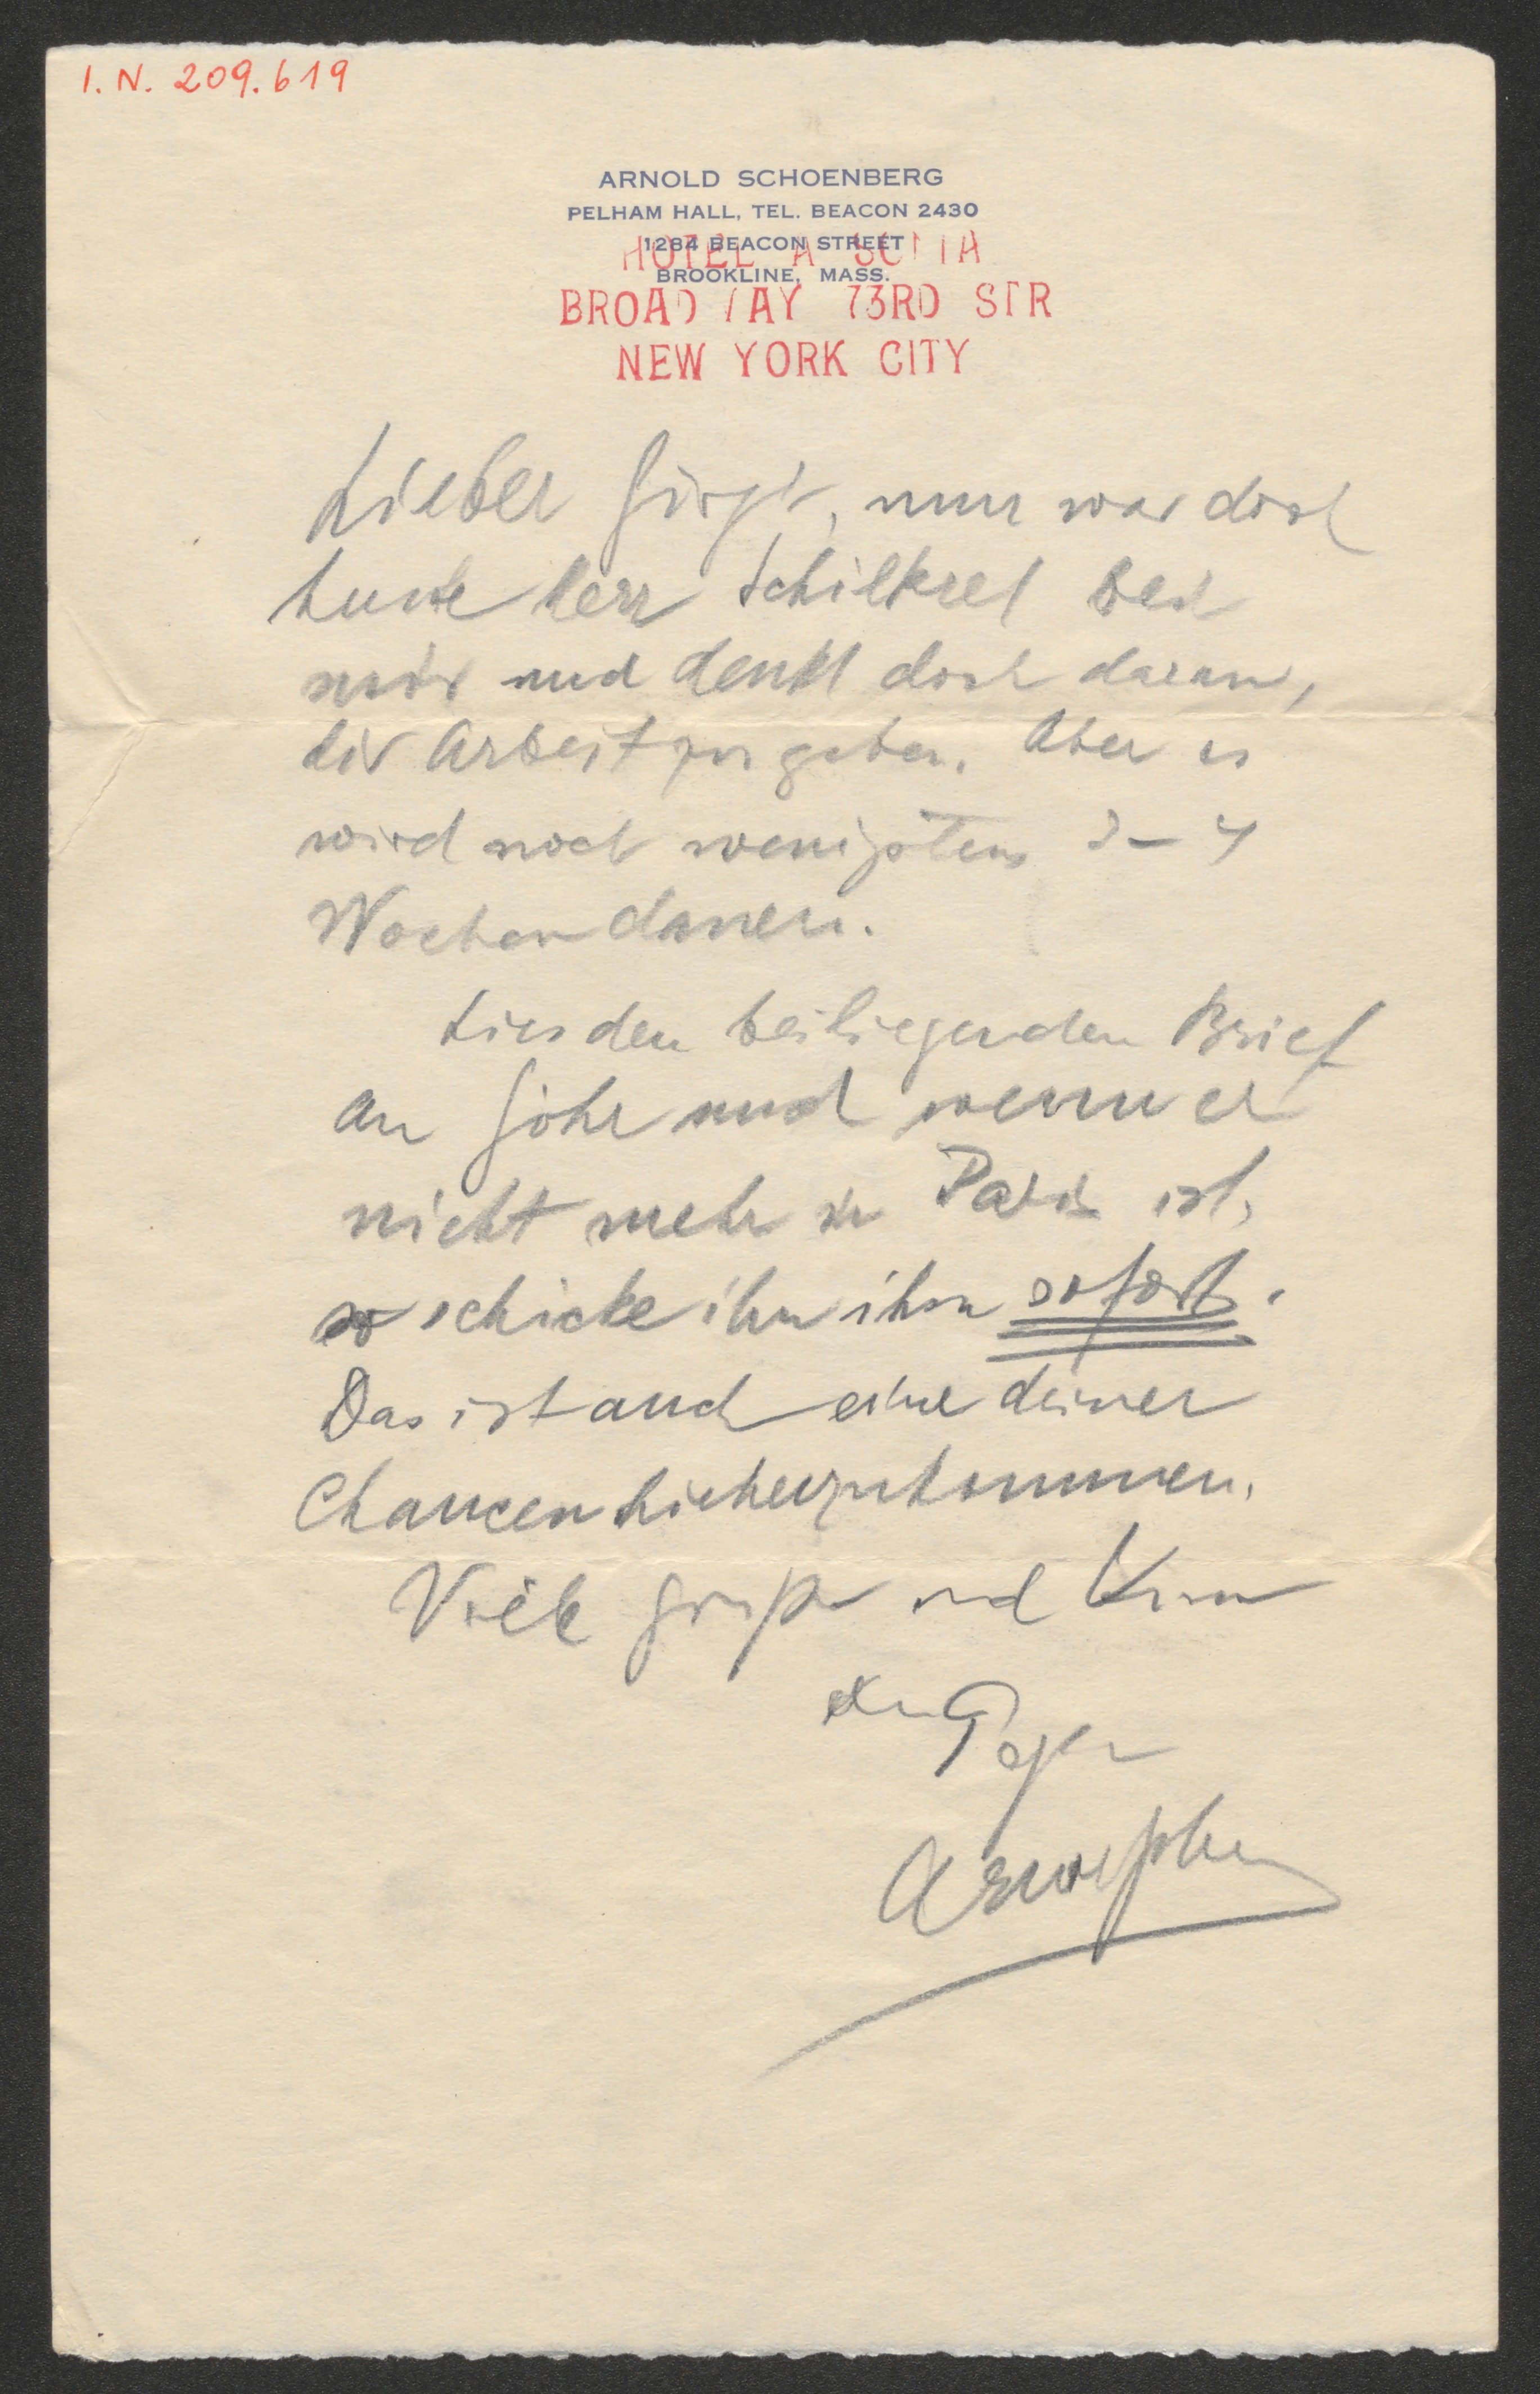 I.N. 209.619
ARNOLD SCHOENBERG
PELHAM HALL, TEL. BEACON 2430
1284 BEACON STREET
HOTEL A SONIA
BROOKLINE, MASS.
BROADWAY 73RD STR
NEW YORK CITY
Lieber Görgi, nun war doch
heute Herr Schilkret bei
mir und denkt doch daran,
dir Arbeit zu geben. Aber es
wird noch wenigstens 3–4
Wochen dauern.
Lies den beiliegenden Brief
an Görgi und wenn er
nicht mehr in Paris ist,
so schicke ihn ihm sofort.
Das ist auch eine deiner
Chancen hieherzukommen.
Viele Grüße und Küsse
dein Papa